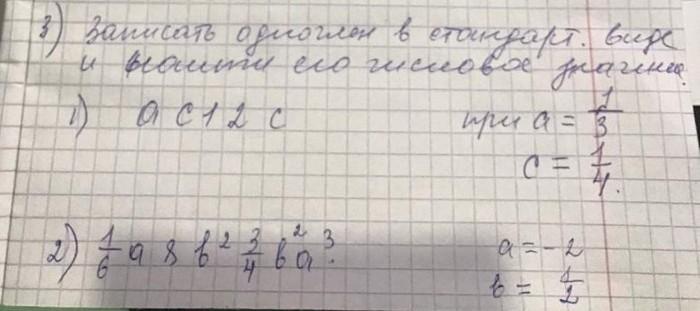 3) Записать одночлен в стандарт. виде
и найти его числовое значение.
1) a c 12 c при a = 1/3
c = 1/4.
2) 1/6 a 8 b² 3/4 b² a³. a = -2
b = 1/2